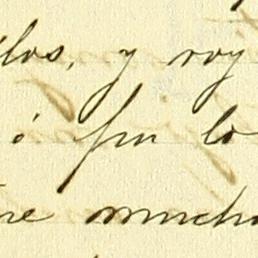 llos, y voy
ó fin lo
re mucho